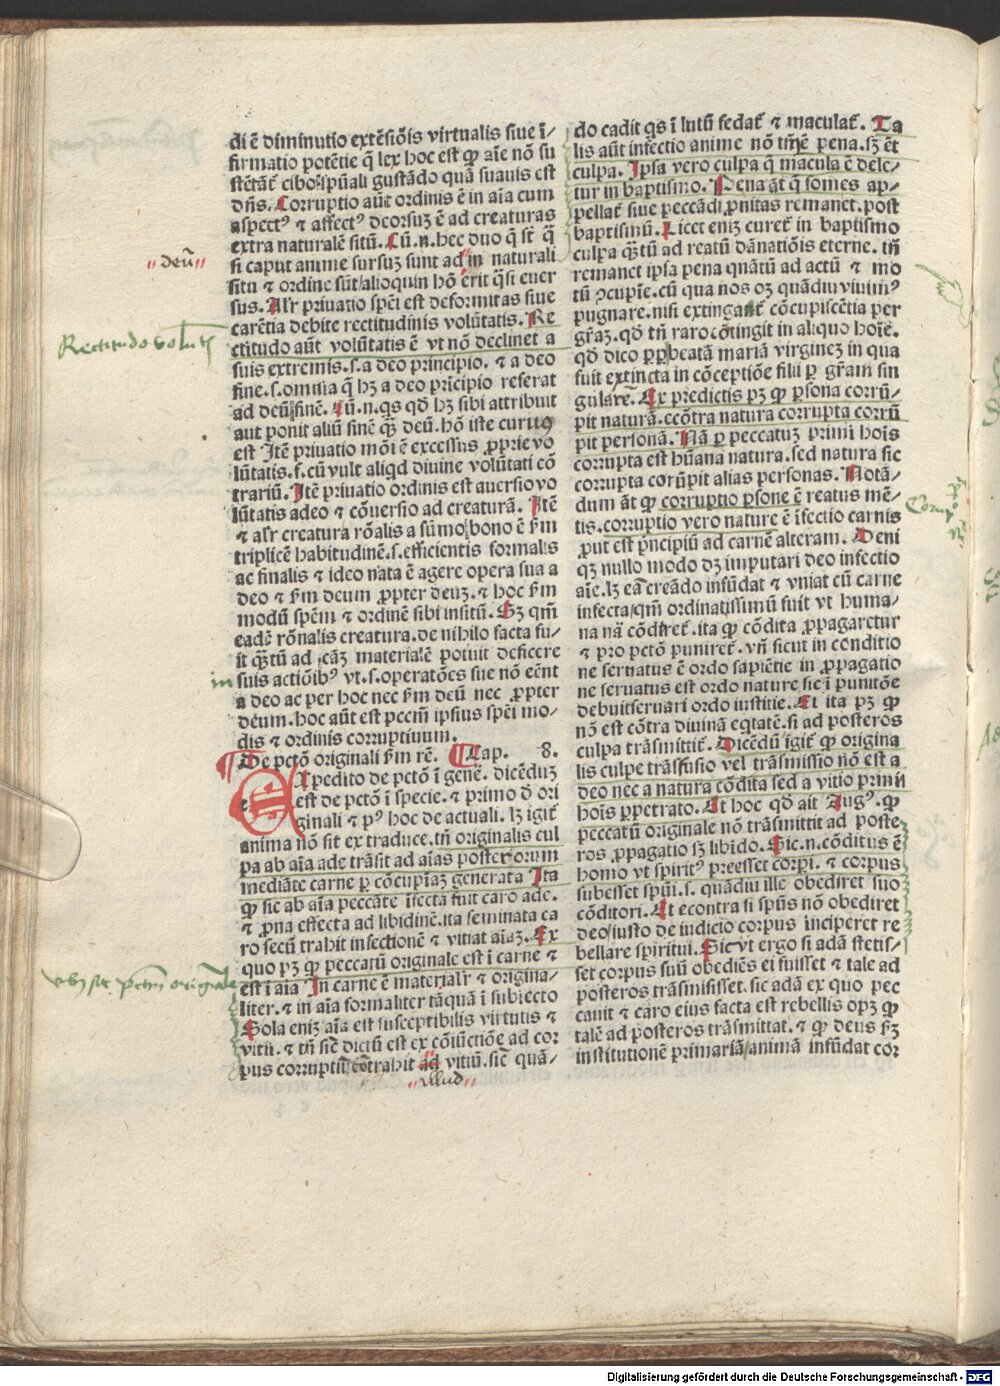 di ē diminutio extēsiōis virtualis siue ī⸗
firmatio potētie q̄ lex hoc est ꝙ aīe nō su
stētāt᷑ cibo spūali gustādo quā suauis est
dn̄s. Corruptio aūt ordinis ē in aīa cum
aspectꝰ ⁊ affectꝰ deorsuꝫ ē ad creaturas
extra naturalē sitū. Cū.n.hec duo q̄ st̄ q̄
si caput anime sursuꝫ sunt ad in naturali
deū
situ ⁊ ordine sūt/alioquin hō erit q̄si euer
sus. Alr̄ priuatio spēi est deformitas siue
carētia debite rectitudinis volūtatis. Re
Rectitudo volūt
ctitudo aūt volūtatis ē vt nō declinet a
suis extremis.s.a deo principio. ⁊ a deo
fine.s.omnia q̄ hꝫ a deo prīcipio referat
ad deū finē. Cū.n.qs qd̄ hꝫ sibi attribuit
aut ponit aliū finē q̄ꝫ deū.hō iste curuꝰ
est Itē priuatio mōi ē excessus ꝓprie vo
lūtatis.s.cū vult aliqd diuine volūtati cō
trariū. Itē priuatio ordinis est auersio vo
lūtatis adeo ⁊ cōuersio ad creaturā. Itē
⁊ alr̄ creatura rōalis a sūmo bono ē ẜm
triplicē habitudinē.s.efficientis formalis
ac finalis ⁊ ideo nata ē agere opera sua a
deo ⁊ ẜm deum ꝓpter deuꝫ.⁊ hoc ẜm
modū spēm ⁊ ordinē sibi insitū. Sꝫ qm̄
eadē rōnalis creatura.de nihilo facta fu⸗
it q̄ꝫtū ad cāꝫ materialē potuit deficere
in suis actiōibꝰ vt.s.operatōes sue nō eēnt
a deo ac per hoc nec ẜm deū nec ꝓpter
deum.hoc aūt est pccm̄ ipsius spēi mo⸗
dis ⁊ ordinis corruptiuum.
De pctō originali ẜm rē. Cap. 8.
Expedito de pctō ī genē. dicēduꝫ
est de pctō ī specie.⁊ primo d̄ ori
ginali ⁊ pꝰ hoc de actuali.lꝫ igit᷑
anima nō sit ex traduce.tn̄ originalis cul
pa ab aīa ade trāsit ad aīas posteriorum
mediāte carne ꝑ cōcupīaꝫ generata Ita
ꝙ sic ab aīa peccāte īfecta fuit caro ade.
⁊ ꝓna effecta ad libidinē.ita seminata ca
ro secū trahit infectionē ⁊ vitiat aīaꝫ. Ex
quo pꝫ ꝙ peccatū originale est ī carne ⁊
vbi sit pctm̄ originale
est ī aīa In carne ē materialr̄ ⁊ origina⸗
liter.⁊ in aīa formaliter tāquā ī subiecto
Sola eniꝫ aīa est susceptibilis virtutis ⁊
vitii.⁊ tn̄ sic̄ dictū est ex cōiūctiōe ad cor
pus corruptū cōtrahit ad vitiū.sic̄ quā⸗
illud
do cadit qs ī lutū fedat᷑ ⁊ maculat᷑. Ta
lis aūt infectio anime nō tm̄ē pena.sꝫ ēt
culpa. Ipsa vero culpa q̄ macula ē dele⸗
tur in baptismo. Pena āt q̄ fomes ap⸗
pellat᷑ siue peccādi ꝓnitas remanet.post
baptismū. Licet eniꝫ curet᷑ in baptismo
culpa q̄ꝫtū ad reatū dānatiōis eterne.tn̄
remanet ipsa pena quātū ad actū ⁊ mo
tū ꝯcupīe.cū qua nos oꝫ quādiu viuimꝰ
pugnare.nisi extingat᷑ cōcupiscētia per
gr̄aꝫ.qd̄ tn̄ raro cōtingit in aliquo hoīe.
qd̄ dico ꝓpt beatā mariā virginez in qua
fuit extincta in cōceptiōe filii ꝑ gr̄am sin
gularē. Ex predictis pꝫ ꝙ ꝑsona corrū⸗
pit naturā.ecōtra natura corrupta corrū
pit personā. Nā ꝑ peccatuꝫ primi hoīs
corrupta est hūana natura.sed natura sic
corrupta corūpit alias personas. Notā⸗
dum āt ꝙ corruptio ꝑsone ē reatus mē⸗
tis.corruptio vero nature ē īfectio carnis
ꝓut est prīcipiū ad carnē alteram. Deni
qꝫ nullo modo dꝫ imputari deo infectio
aīe.lꝫ eā creādo infūdat ⁊ vniat cū carne
infecta/qm̄ ordinatissimū fuit vt huma⸗
na nā cōdiret᷑.ita ꝙ cōdita ꝓpagaretur
⁊ pro pctō puniret᷑.vn̄ sicut in conditio
ne seruatus ē ordo sapiētie in ꝓpagatio
ne seruatus est ordo nature sic ī punitōe
debuit seruari ordo iustitie. Et ita pꝫ ꝙ
nō est cōtra diuinā eq̄tatē.si ad posteros
culpa trāsmittit᷑. Dicēdū igit᷑ ꝙ origina
lis culpe trāsfusio vel trāsmissio nō est a
deo nec a natura cōdita sed a vitio primi
hoīs ꝑpetrato. Et hoc qd̄ ait Augꝰ.ꝙ
peccatū originale nō trāsmittit ad poste
ros ꝓpagatio sꝫ libido. Sic.n.cōditus ē
homo vt spiritꝰ preesset corpi.⁊ corpus
subesset spūi.s. quādiu ille obediret suo
cōditori. Et econtra si spūs nō obediret
deo/iusto dei iudicio corpus inciperet re
bellare spiritui. Sicut ergo si adā stetis⸗
set corpus suū obediēs ei fuisset ⁊ tale ad
posteros trāsmisisset.sic adā ex quo pec
cauit ⁊ caro eius facta est rebellis opꝫ ꝙ
talē ad posteros trāsmittat.⁊ ꝙ deus ẜꝫ
institutionē primariā/animā infūdat cor
Digitalisierung gefördert durch die Deutsche Forschungsgemeinschaft - DFG